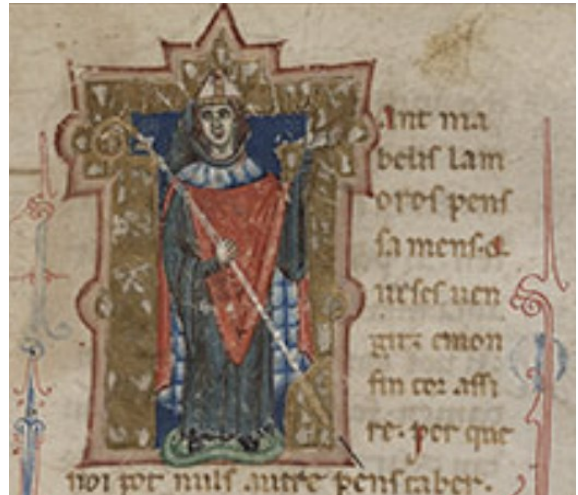 Tant ma
belis lam
oros pens
sa mens. q
ueses uen
guz emon
fin cor assi
re. per que
noi pot nuls autre pens caber.